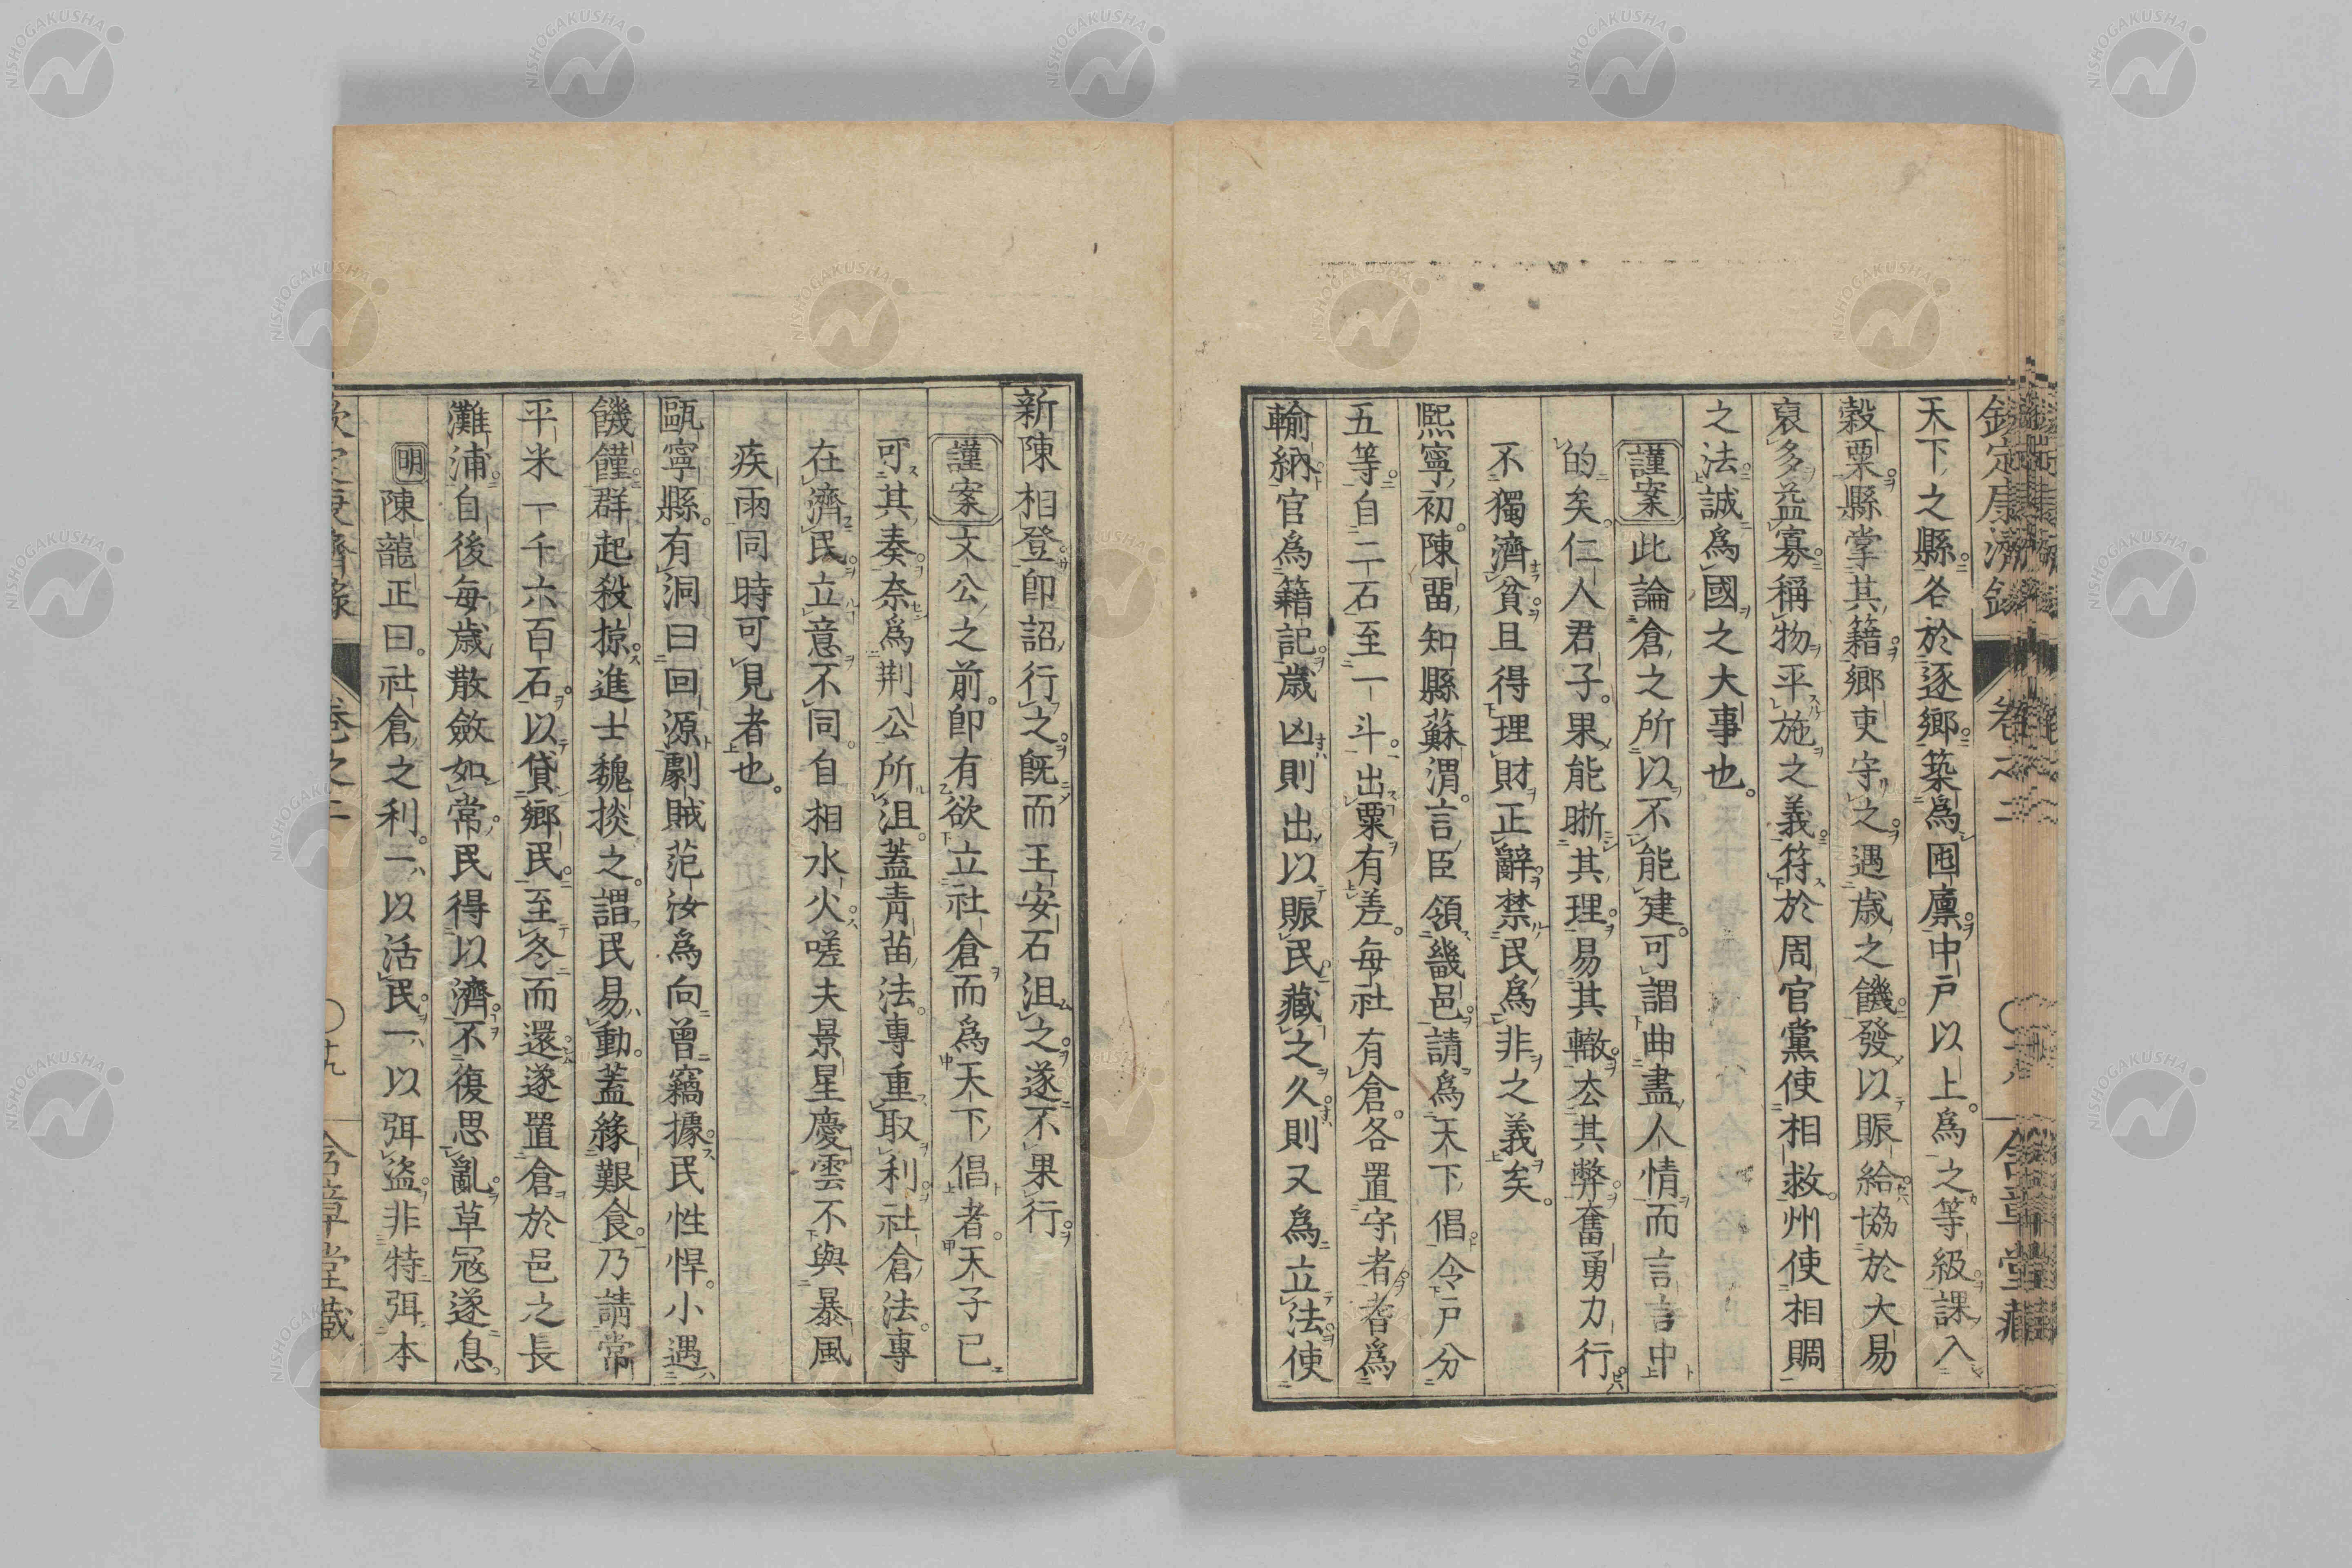 天下之縣各於逐鄉築爲囤廩中戸以上爲之等級課入
穀粟縣掌其籍鄉吏守之遇歲之饑發以賑給協於大易
裒多益寡稱物平施之義符於周官黨使相救州使相賙
之法誠爲國之大事也。
謹案此論倉之所以不能建可謂曲盡人情而言言中
的矣仁人君子果能晰其理易其轍去其弊奮勇力行
不獨濟貧且得理財正辭禁民爲非之義矣。
熙寧初陳畱知縣蘇渭言臣領畿邑請爲天下倡令戸分
五等自二石至一斗出粟有差每社有倉各置守者耆爲
輸納官爲籍記歲凶則出以賑民藏之久則又爲立法使
新陳相登卽詔行之旣而王安石沮之遂不果行。
謹案文公之前卽有欲立社倉而爲天下倡者天子已
可其奏奈爲荆公所沮蓋靑苗法專重取利社倉法專
在濟民立意不同自相水火嗟夫景星慶雲不與暴風
疾雨同時可見者也。
甌寧縣有洞曰回源劇賊范汝爲向曾竊據民性悍小遇
饑饉群起殺掠進士魏掞之謂民易動蓋緣艱食乃請常
平米一千六百石以貸鄉民至冬而還遂置倉於邑之長
灘浦自後每歲散斂如常民得以濟不復思亂草寇遂息
明陳龍正曰社倉之利一以活民一以弭盜非特弭本
卷之二
含章堂藏
NISHOGAKUSHA